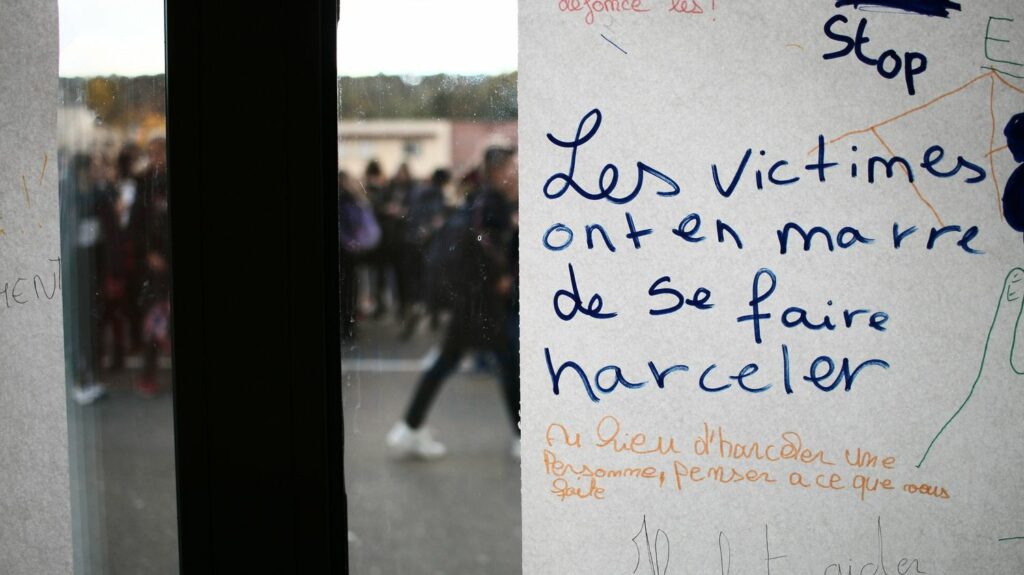 Stop
E
Les victimes
ont en marre
de se faire
harceler
Au lieu d'harceler une
Personne, penser a ce que vous
faite
MENT
aider